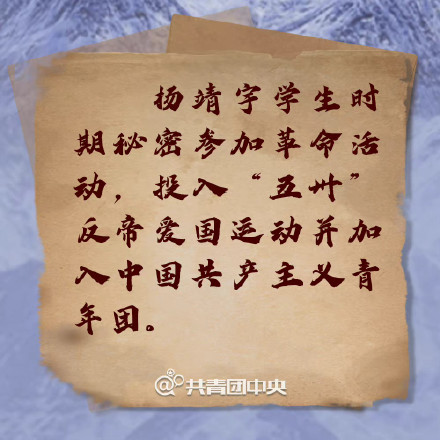 杨靖宇学生时
期秘密参加革命活
动，投入“五卅”
反帝爱国运动并加
入中国共产主义青
年团。
@共青团中央